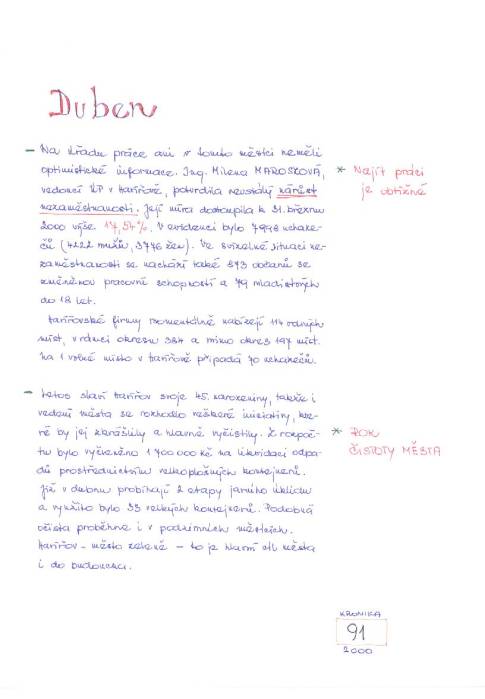 Duben
– Na Úřadu práce ani v tomto měsíci neměli
optimistické informace. Ing. Milena MAROSZOVÁ,
vedoucí ÚP v Havířově, potvrdila neustálý nárůst
nezaměstnanosti. Její míra dostoupila k 31. březnu
2000 výše 17,54%. V evidenci bylo 7998 uchaze-
čů (4222 mužů, 3776 žen). Ve svízelné situaci ne-
zaměstnanosti se nachází také 873 občanů se
změněnou pracovní schopností a 79 mladistvých
do 18 let.
Havířovské firmy momentálně nabízejí 114 volných
míst, v rámci okresu 384 a mimo okres 197 míst.
Na 1 volné místo v Havířově připadá 70 uchazečů.
* Najít práci
je obtížné
– Letos slaví Havířov svoje 45. narozeniny, takže i
vedení města se rozhodlo neškrtit iniciativy, kte-
ré by jej zkrášlily a hlavně vyčistily. Z rozpoč-
tu bylo vyčleněno 1 700 000 Kč na likvidaci odpa-
dů prostřednictvím velkoplošných kontejnerů.
Již v dubnu probíhají 2 etapy jarního úklidu
a využito bylo 33 velkých kontejnerů. Podobná
očista proběhne i v podzimních měsících.
Havířov – město zeleně – to je hlavní cíl města
i do budoucna.
* ROK
ČISTOTY MĚSTA
KRONIKA
91
2000